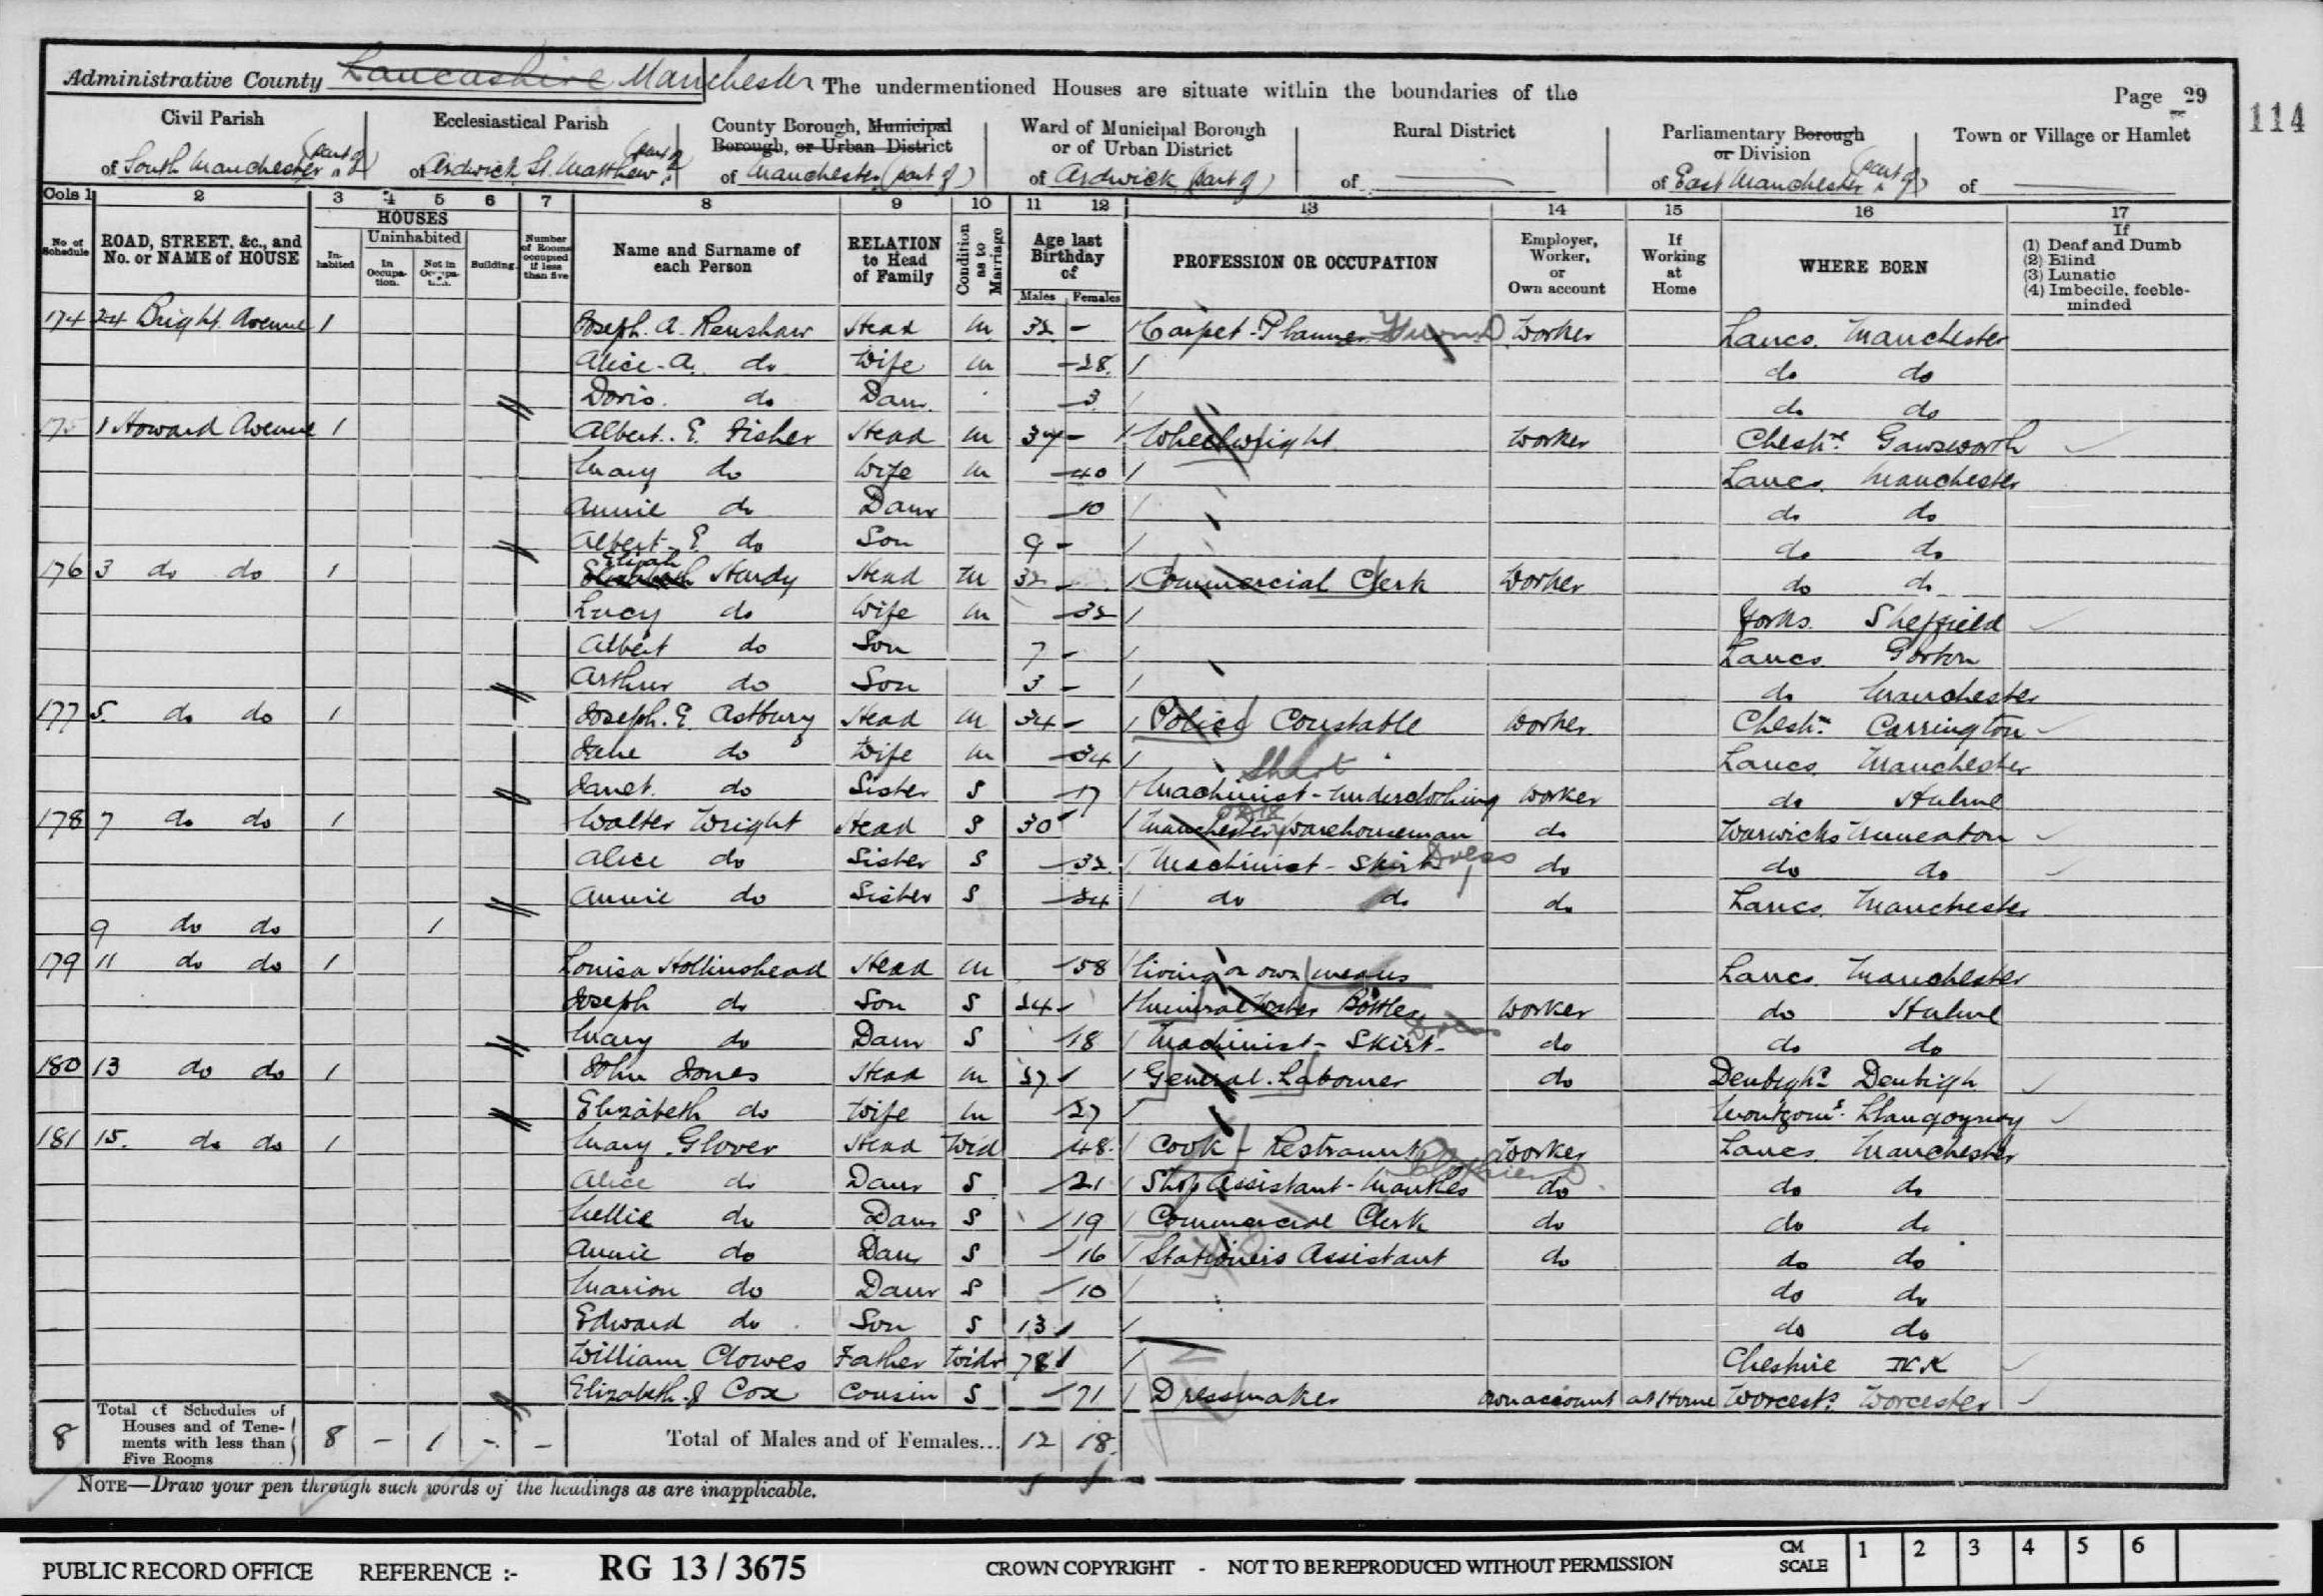 Administrative County Lancashire Manchester The undermentioned Houses are situate within the boundaries of the Page 29
114
Civil Parish Ecclesiastical Parish County Borough, Municipal Borough, or Urban District Ward of Municipal Borough or of Urban District Rural District Parliamentary Borough or Division Town or Village or Hamlet
of South Manchester (part of) of Ardwick St. Matthew (part of) of Manchester (part of) of Ardwick (part of) of of East Manchester (part of) of
Cols 1 2 3 4 5 6 7 8 9 10 11 12 13 14 15 16 17
No of Schedule ROAD, STREET, &c., and No. or NAME of HOUSE HOUSES In-habited Uninhabited In Occupa-tion. Not in Occupa-tion. Building. Number of Rooms occupied if less than five Name and Surname of each Person RELATION to Head of Family Condition as to Marriage Age last Birthday of Males Females PROFESSION OR OCCUPATION Employer, Worker, or Own account If Working at Home WHERE BORN If (1) Deaf and Dumb (2) Blind (3) Lunatic (4) Imbecile, feeble-minded
174 24 Bright Avenue 1 Joseph. A. Renshaw Head M 32 - Carpet Planner Worker Lancs. Manchester
Alice. A. do Wife M 28 do do
Doris. do Daur. 3 do do
175 1 Howard Avenue 1 Albert. E. Fisher Head M 34 - Wheelwright Worker Chesh. Gawsworth
Mary do Wife M 40 Lancs. Manchester
Annie do Daur 10 do do
Albert E. do Son 9 - do do
176 3 do do 1 Elijah Hardy Head M 32 - Commercial Clerk Worker do do
Lucy do Wife M 32 Yorks. Sheffield
Albert do Son 7 - Lancs. Gorton
Arthur do Son 3 - do Manchester
177 5. do do 1 Joseph. E. Astbury Head M 34 - Police Constable Worker. Chesh. Carrington
Jane do Wife M 34 Lancs. Manchester
Shirt
Janet. do Sister S 17 Machinist - Underclothing Worker do Hulme
178 7 do do 1 Walter Wright Head S 30 Manchester Warehouseman do Warwicks Nuneaton
Alice do Sister S 32 Machinist - Skirt Dress do do do
Annie do Sister S 24 do do do Lancs. Manchester
9 do do 1
179 11 do do 1 Louisa Hollinshead Head M 58 Living on own means Lancs. Manchester
Joseph do Son S 24 Mineral Water Bottler Worker do Hulme
Mary do Daur S 18 Machinist - Skirt - Dress do do do
180 13 do do 1 John Jones Head M 37 General Labourer do Denbighs. Denbigh
Elizabeth do Wife M 27 Montgoms.
181 15. do do 1 Mary Glover Head Wid 48 Cook - Restraunt Worker Lancs. Manchester
Alice do Daur S 21 Shop Assistant - Mantles do do do
Nellie do Daur S 19 Commercial Clerk do do do
Annie do Daur S 16 Stationers Assistant do do do
Marion do Daur S 10 do do
Edward do Son S 13 do do
William Clowes Father Widr 78 Cheshire N.K
Elizabeth. J Cox Cousin S 71 Dressmaker own account at Home Worcest. Worcester
8 Total of Schedules of Houses and of Tene-ments with less than Five Rooms 8 - 1 - - Total of Males and of Females... 12 18
NOTE—Draw your pen through such words of the headings as are inapplicable.
PUBLIC RECORD OFFICE REFERENCE :- RG 13 / 3675 CROWN COPYRIGHT - NOT TO BE REPRODUCED WITHOUT PERMISSION CM SCALE 1 2 3 4 5 6